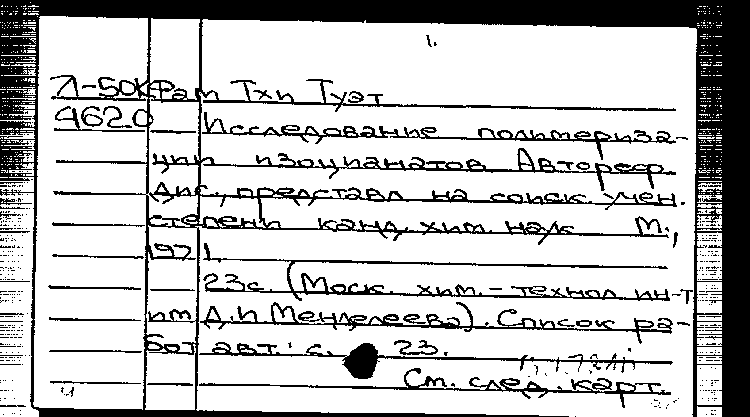 1.
Л-50К Фам Тхи Туэт
4620 Исследование полимериза-
ции изоцианатов. Автореф.
дис., представл. на соиск. учен.
степени канд. хим. наук М.,
1971.
23с. (Моск. хим.-технол. ин-т
им Д.И Менделеева). Список ра-
бот авт.: с. 23.
См. след. карт.